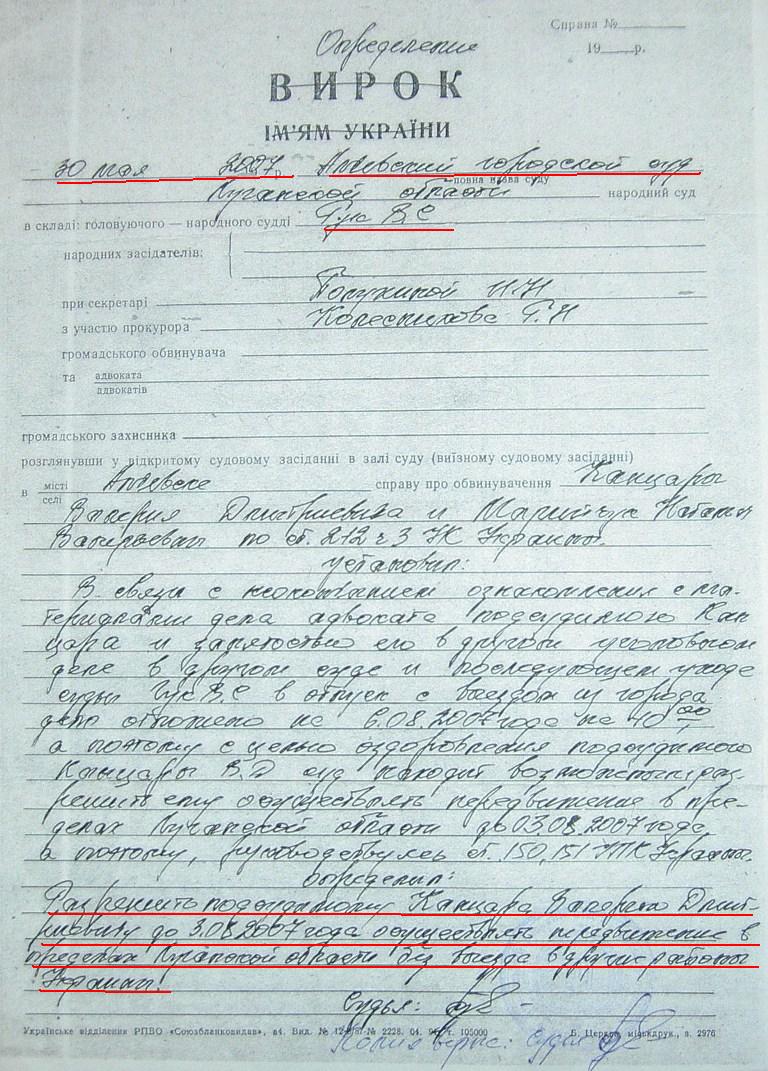 Справа №
Определение
19 р.
ВИРОК
ІМ'ЯМ УКРАЇНИ
30 мая 2007 р. Алчевский городской суд
повна назва суду
Луганской области народний суд
в складі: головуючого — народного судді Гук В.С
народних засідателів:
при секретарі Полухиной И.Н
з участю прокурора Колесникова Г.Н
громадського обвинувача
та адвоката
адвокатів
громадського захисника
розглянувши у відкритому судовому засіданні в залі суду (виїзному судовому засіданні)
в місті Алчевске справу про обвинувачення Канцары
селі
Валерия Дмитриевича и Марийчук Натальи
Валерьевны по ст. 212 ч 3 УК Украины.
установил:
В связи с неокончанием ознакомления с ма-
териалами дела адвоката подсудимого Кан-
цара и занятостью его в другом уголовном
деле в другом суде и последующем уходе
судьи Гук В.С в отпуск с выездом из города
дело отложено на 6.08.2007 года на 10 00
а поэтому с целью оздоровления подсудимого
Канцары В.Д суд находит возможным раз-
решить ему осуществлять передвижение в пре-
делах Луганской области до 03.08.2007 года
а поэтому, руководствуясь ст. 150, 151 УПК Украины.
определил:
Разрешить подсудимому Канцара Валерию Дмит-
риевичу до 3.08.2007 года осуществлять передвижение в
пределах Луганской области без выезда в другие районы
Украины.
Судья:
Українське відділення РПВО «Союзбланковидав», в4. Вид. № 2228. 04. т. 105000 Б. Церков, міськдрук, з. 2976
Копия верна: судья